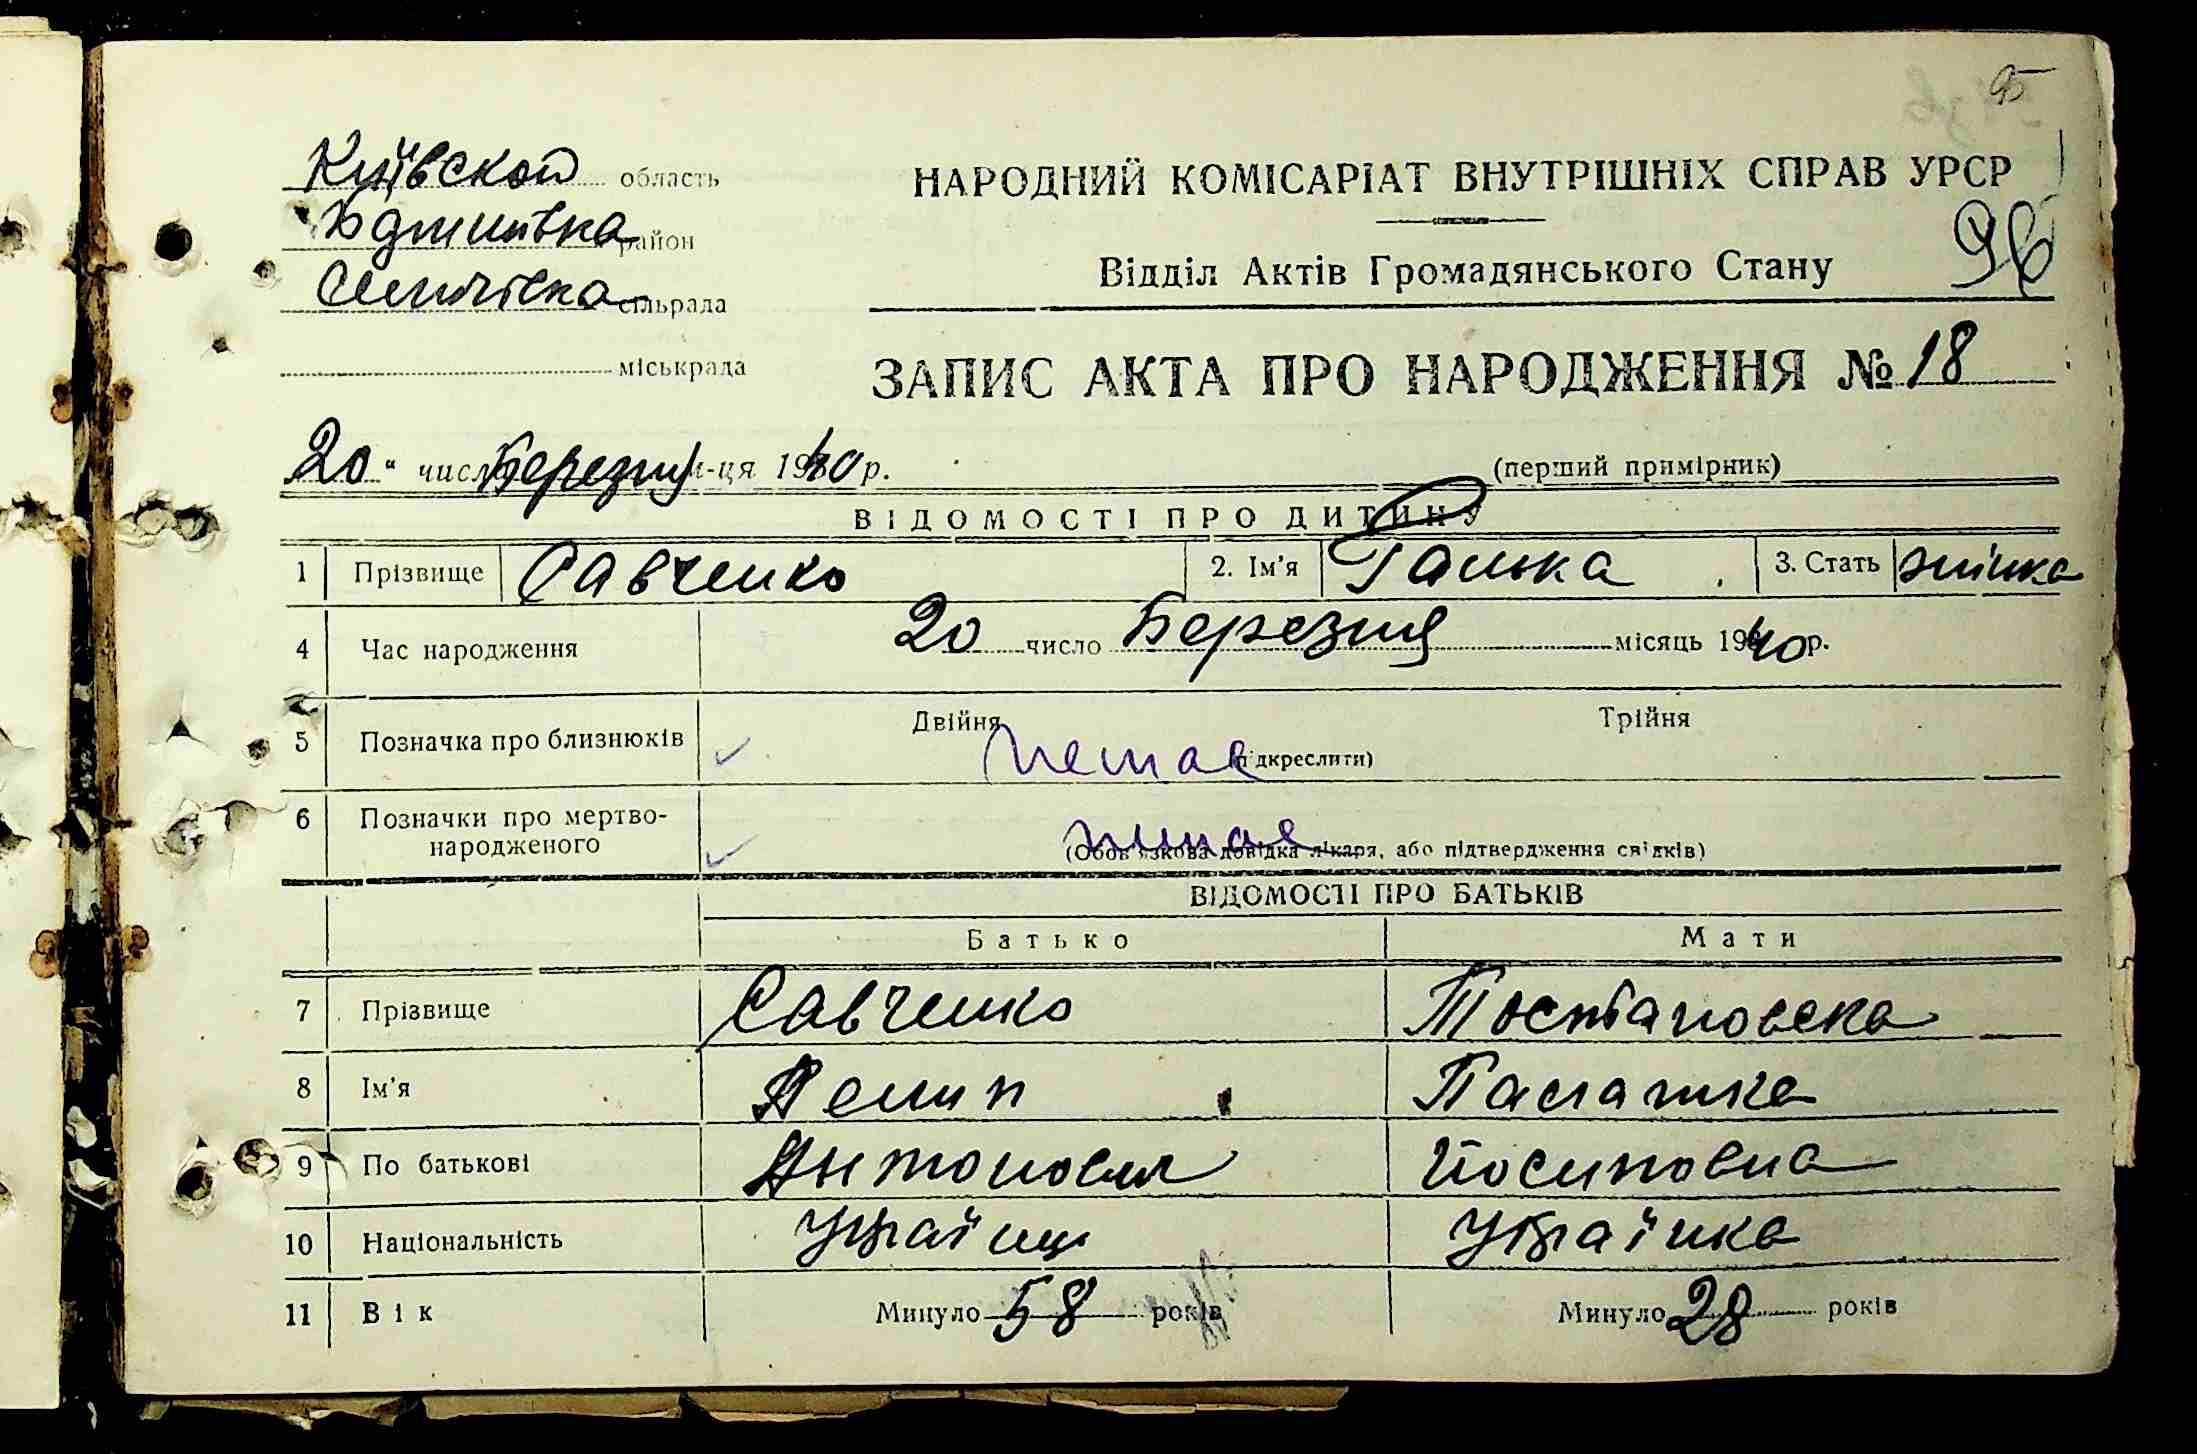 95
Київской область
район
сільрада
міськрада
НАРОДНИЙ КОМІСАРІАТ ВНУТРІШНІХ СПРАВ УРСР
96
Відділ Актів Громадянського Стану
ЗАПИС АКТА ПРО НАРОДЖЕННЯ № 18
20 " числ Березня м-ця 1940 р.
(перший примірник)
ВІДОМОСТІ ПРО ДИТИНУ
1 Прізвище Савченко 2. Ім'я Галька 3. Стать жінка
4 Час народження 20 число Березня місяць 1940 р.
5 Позначка про близнюків Двійня Трійня
немає (підкреслити)
6 Позначки про мертво-
народженого немає
(Обов'язкова довідка лікаря, або підтвердження свідків)
ВІДОМОСТІ ПРО БАТЬКІВ
Батько Мати
7 Прізвище Савченко
8 Ім'я Пелашка
9 По батькові Антонович Йосиповна
10 Національність Українц Українка
11 Вік Минуло 58 років Минуло 28 років